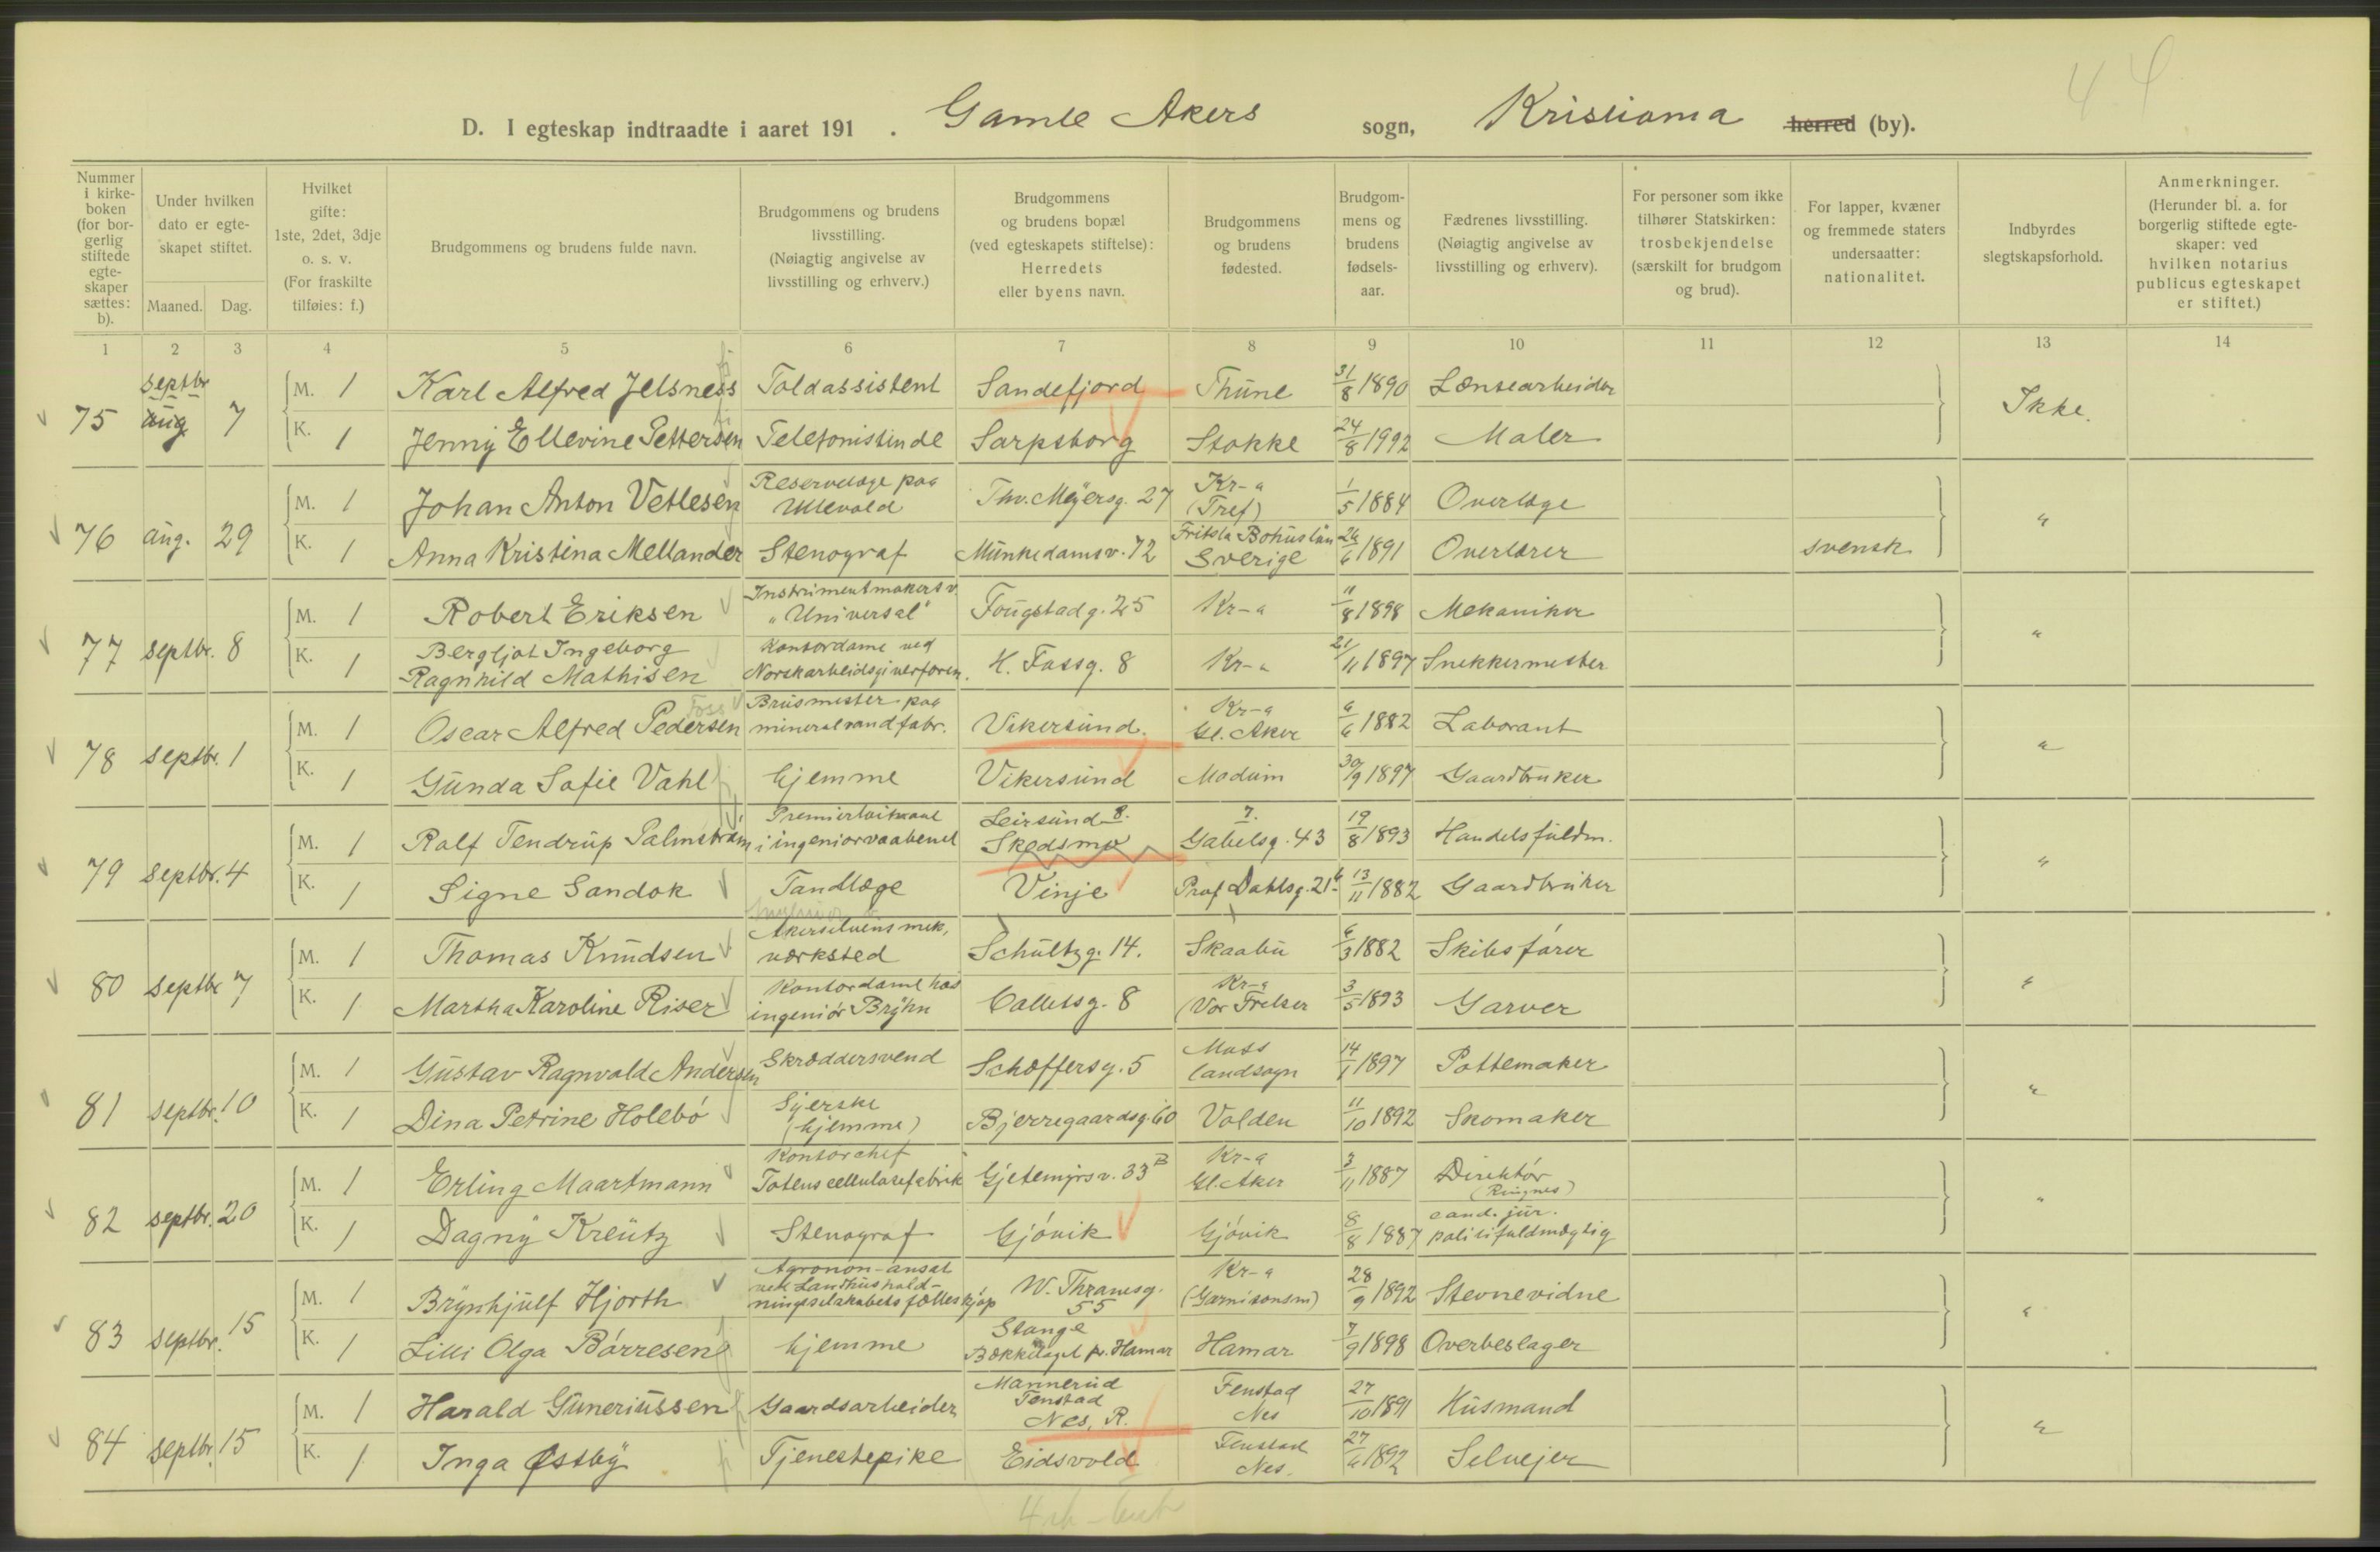 44
D. I egteskap indtraadte i aaret 191 . Gamle Akers sogn, Kristiania herred (by).
Nummer i kirkeboken (for borgerlig stiftede egteskaper sættes: b).
Under hvilken dato er egteskapet stiftet.
Maaned. Dag.
Hvilket gifte: 1ste, 2det, 3dje o. s. v. (For fraskilte tilføies: f.)
Brudgommens og brudens fulde navn.
Brudgommens og brudens livsstilling. (Nøiagtig angivelse av livsstilling og erhverv.)
Brudgommens og brudens bopæl (ved egteskapets stiftelse): Herredets eller byens navn.
Brudgommens og brudens fødested.
Brudgommens og brudens fødselsaar.
Fædrenes livsstilling. (Nøiagtig angivelse av livsstilling og erhverv).
For personer som ikke tilhører Statskirken: trosbekjendelse (særskilt for brudgom og brud).
For lapper, kvæner og fremmede staters undersaatter: nationalitet.
Indbyrdes slegtskapsforhold.
Anmerkninger. (Herunder bl. a. for borgerlig stiftede egteskaper: ved hvilken notarius publicus egteskapet er stiftet.)
1 2 3 4 5 6 7 8 9 10 11 12 13 14
75 septbr aug 7 M. 1 Karl Alfred Jelsness Toldassistent Sandefjord Thune 31/8 1890 Lænsearbeider Ikke.
K. 1 Jenny Ellevine Pettersen Telefonistinde Sarpsborg Stokke 24/8 1992 Maler
76 aug. 29 M. 1 Johan Anton Vetlesen Reservelæge paa Ullevold Thv. Meyersg. 27 Kr-a (Tref) 1/5 1884 Overlæge "
K. 1 Anna Kristina Mellander Stenograf Munkedamsv. 72 Fritsla Bohuslän Sverige 26/6 1891 Overlærer svensk
77 septbr. 8 M. 1 Robert Eriksen Instrumentmaker v. "Universal" Fougstadg. 25 Kr-a 11/8 1898 Mekaniker "
K. 1 Bergljot Ingeborg Ragnhild Mathisen Kontordame ved Norsk arbeidsgiverforen. H. Fossg. 8 Kr-a 21/11 1897 Snekkermester
78 septbr. 1 M. 1 Oscar Alfred Pedersen Foss Brusmester paa mineralvandfabr. Vikersund. Kr-a Gl. Aker 6/6 1882 Laborant "
K. 1 Gunda Sofie Vahl hjemme Vikersund Modum 30/9 1897 Gaardbruker
79 septbr. 4 M. 1 Ralf Tendrup Palmstrøm Premierløitnant i ingeniørvaabenet Leirsund 8. Skedsmo 7. Gabelsg. 43 19/8 1893 Handelsfuldm. "
K. 1 Signe Sandok Tandlæge Vinje Prof Dahlsg. 21 b 13/11 1882 Gaardbruker
80 septbr 7 M. 1 Thomas Knudsen Ingeniør v. Akerselvens mek. verksted Schultzg. 14. Skaabu 6/3 1882 Skibsfører "
K. 1 Martha Karoline Riser Kontordame hos ingeniør Bryhn Colletsg. 8 Kr-a (Vor Frelser 3/5 1893 Garver
81 septbr. 10 M. 1 Gustav Ragnvald Andersen Skræddersvend Schøffersg. 5 Moss landsogn 14/1 1897 Pottemaker "
K. 1 Dina Petrine Holebø Syerske (hjemme) Bjerregaardsg. 60 Volden 11/10 1892 Skomaker
82 septbr. 20 M. 1 Erling Maartmann Kontorchef Totens cellulosefabrik Gjetemyrsv. 33 B Kr-a Gl. Aker 3/11 1887 Direktør (Ringnes) "
K. 1 Dagny Kreutz Stenograf Gjøvik Gjøvik 8/8 1887 cand. jur. politifuldmægtig
83 septbr. 15 M. 1 Brynhjulf Hjorth Agronom - ansat ved Landhusholdningsselskabets fælleskjøp W. Thranesg. 55 Kr-a (Garnisonsm) 28/9 1892 Stevnevidne "
K. 1 Lilli Olga Børresen hjemme Stange Bækkelaget pr. Hamar Hamar 7/9 1898 Overbeslager
84 septbr. 15 M. 1 Harald Guneriussen Gaardsarbeider Mannerud Fenstad Nes, R. Fenstad Nes 27/10 1891 Husmand "
K. 1 Inga Østby Tjenestepike Eidsvold Fenstad Nes. 27/6 1892 Selveier